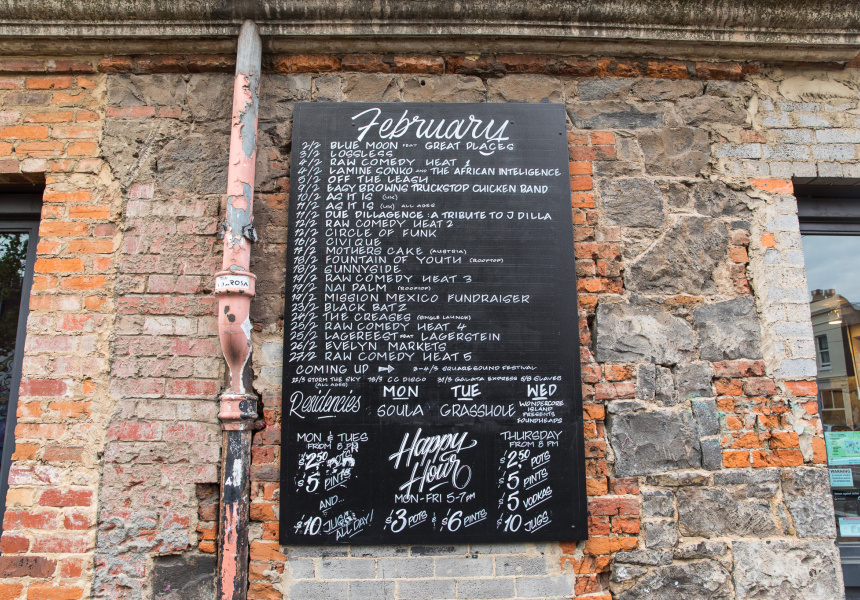 February
2/2 BLUE MOON FEAT GREAT PLACES
3/2 LOGGLESS
4/2 RAW COMEDY HEAT 1
4/2 LAMINE SONKO AND THE AFRICAN INTELIGENCE
5/2 OFF THE LEASH
9/2 EASY BROWNS TRUCKSTOP CHICKEN BAND
10/2 AS IT IS (UK)
11/2 AS IT IS (UK) ALL AGES
11/2 DUE DILLAGENCE: A TRIBUTE TO J DILLA
12/2 RAW COMEDY HEAT 2
CIRCLE OF FUNK
16/2 CIVIQUE
MOTHERS CAKE (AUSTRIA)
18/2 FOUNTAIN OF YOUTH (ROOFTOP)
SUNNYSIDE
RAW COMEDY HEAT 3
NAI PALM (ROOFTOP)
MISSION MEXICO FUNDRAISER
23/2 BLACK BATZ
24/2 THE CREASES (SINGLE LAUNCH)
25/2 RAW COMEDY HEAT 4
25/2 LAGEREEST FEAT LAGERSTEIN
26/2 EVELYN MARKETS
27/2 RAW COMEDY HEAT 5
COMING UP 3-4/3 SQUARESOUND FESTIVAL
STORM THE SKY (ALL AGES) CC DISCO GALATA EXPRESS
Residencies
MON TUE WED
SOULA GRASSHOLE WONDERCORE ISLAND PRESENTS
MON & TUES FROM 8 PM
$2.50 POTS
$5 PINTS
AND...
$10 JUGS ALL DAY!
Happy Hour
MON-FRI 5-7PM
$3 POTS & $6 PINTS
THURSDAY FROM 8 PM
$2.50 POTS
$5 PINTS
$5 VODKAS
$10 JUGS